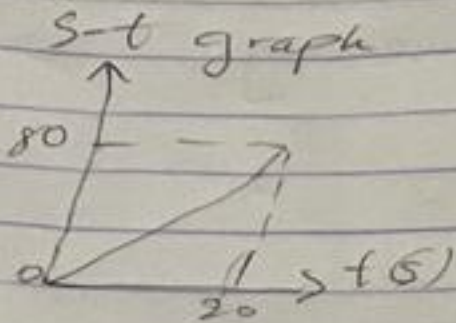 S-t graph
80
0
20
t(s)